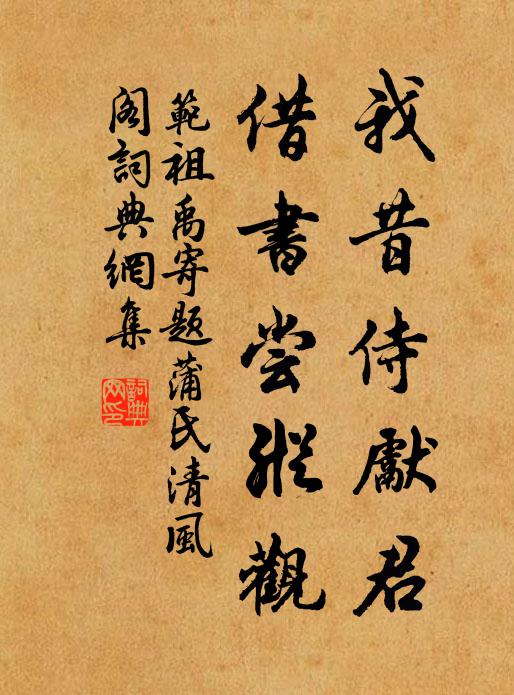 我昔侍獻君
借書嘗縱觀
範祖禹寄題蒲氏清風
閣詞典網集
詞典網印